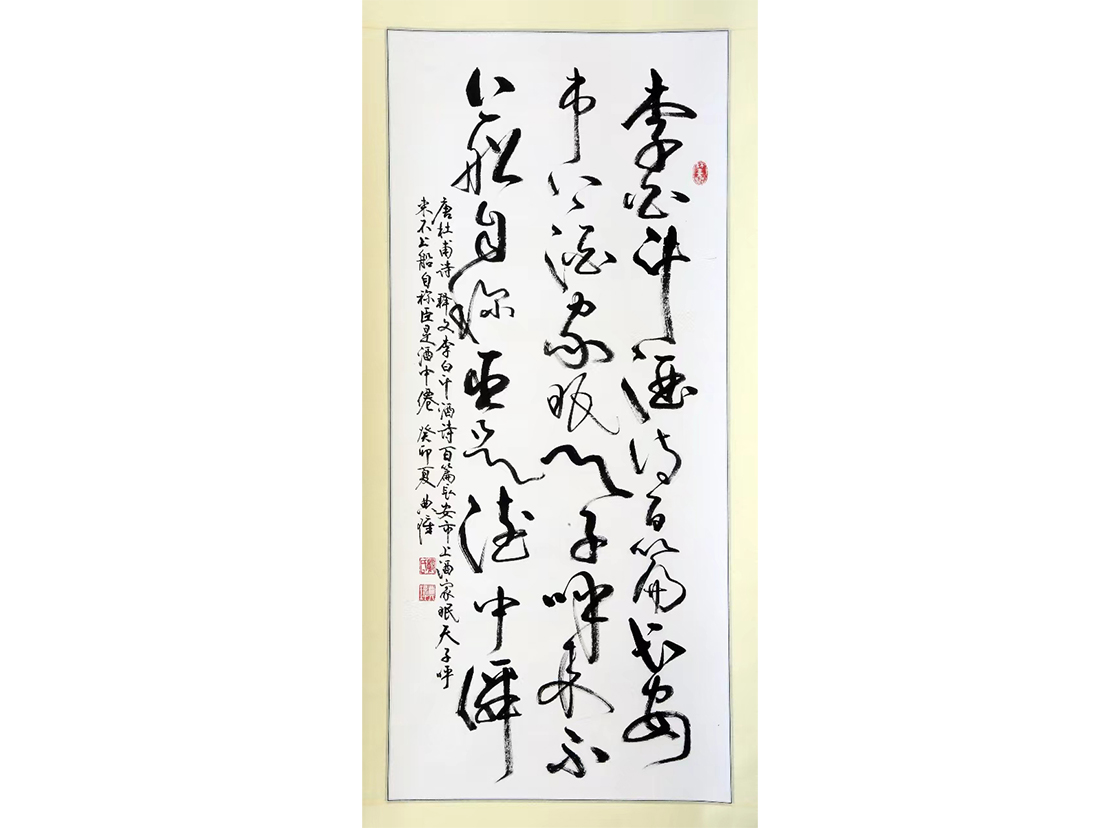 李白斗酒诗百篇长安
市上酒家眠天子呼来不
上船自称臣是酒中僊
唐杜甫诗 释文李白斗酒诗百篇长安市上酒家眠天子呼
来不上船自称臣是酒中僊 癸卯夏